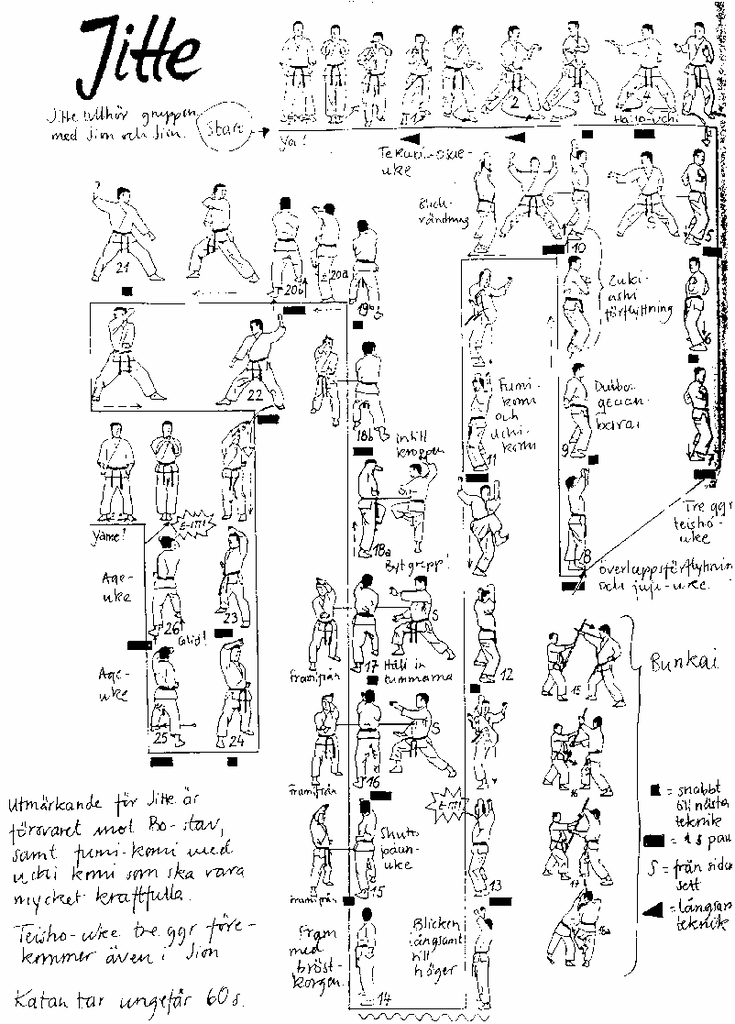 Jitte
Jitte tillhör gruppen
med Jion och Jiin.
Start
Ya!
1
2
3
4
Haito-uchi
Tekubi-osae-
uke
Blick-
vändning
S
S
10
5
21
20b
20a
19b
Zuki-
ashi
förflyttning
6
22
18b
intill
kroppen
Fumi-
komi
och
uchi-
komi
11
Dubbel
gedan-
barai
9
7
Yame!
E-IIT!
18a
Byt grepp!
8
Tre ggr
teisho-
uke
överkroppsförflyttning
och juji-uke.
Age-
uke
26
23
Glid!
Age-
uke
25
24
framifrån
17
Håll in
tummarna
S
12
15
Bunkai
framifrån
16
S
16
Utmärkande för Jitte är
försvaret mot Bo-stav,
samt fumi-komi med
uchi komi som ska vara
mycket kraftfulla.
Teisho-uke tre ggr före-
kommer även i Jion
Katan tar ungefär 60 s.
framifrån
15
Shuto
E-IIT!
13
17
Fram
med
bröst-
korgen.
14
Blicken
långsamt
till
höger
18a
= snabbt
till nästa
teknik
= 1 s pau
S = från sidan
sett
= långsam
teknik